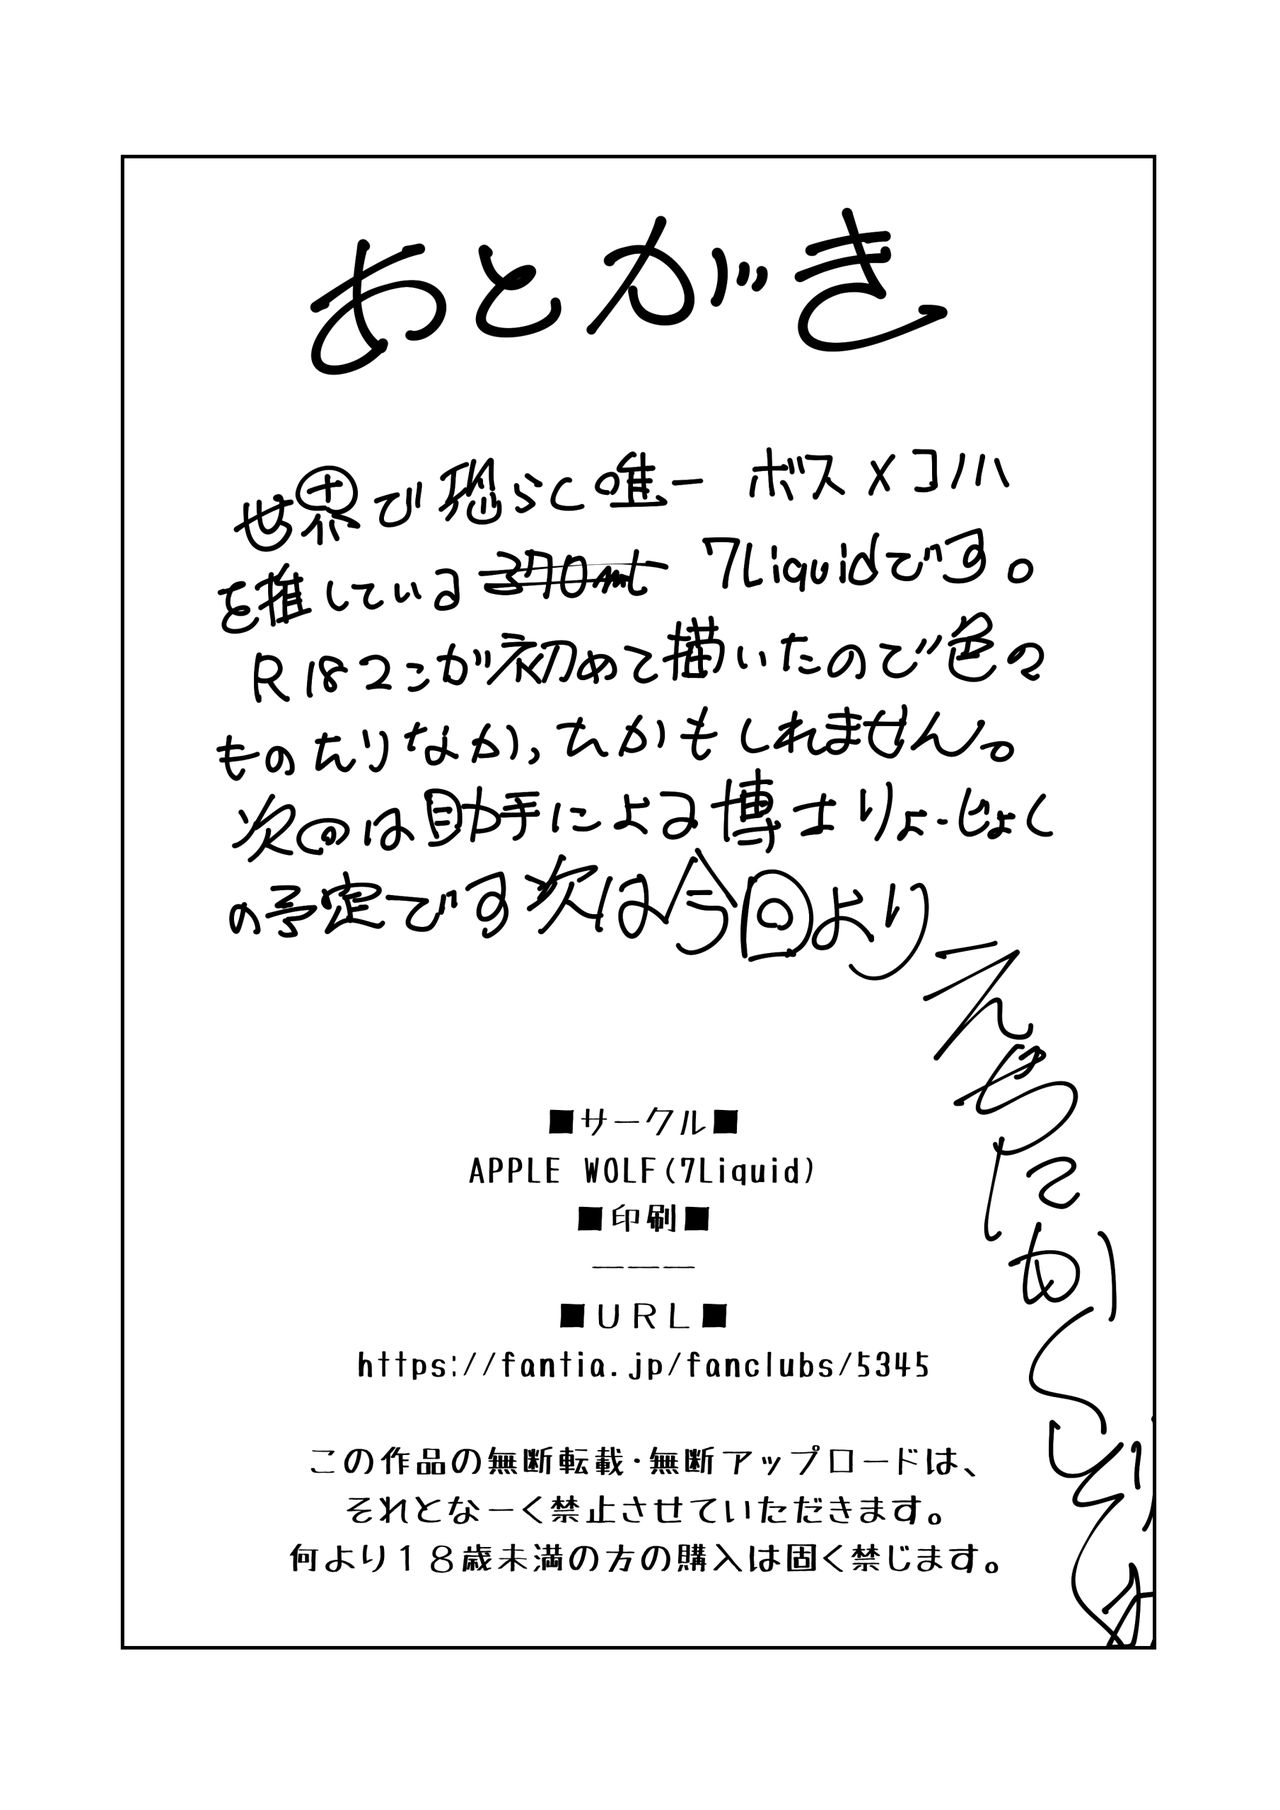 あとがき
世界で恐らく唯一 ボス×コノハ
を推している 370ml 7Liquidです。
R18マンガ初めて描いたので色々
ものたりなかったかもしれません。
次のは助手による博士りょーじょく
の予定です次は今回より
えちちにかく
■サークル■
APPLE WOLF(7Liquid)
■印刷■
―――
■URL■
https://fantia.jp/fanclubs/5345
この作品の無断転載･無断アップロードは、
それとなーく禁止させていただきます。
何より１８歳未満の方の購入は固く禁じます。